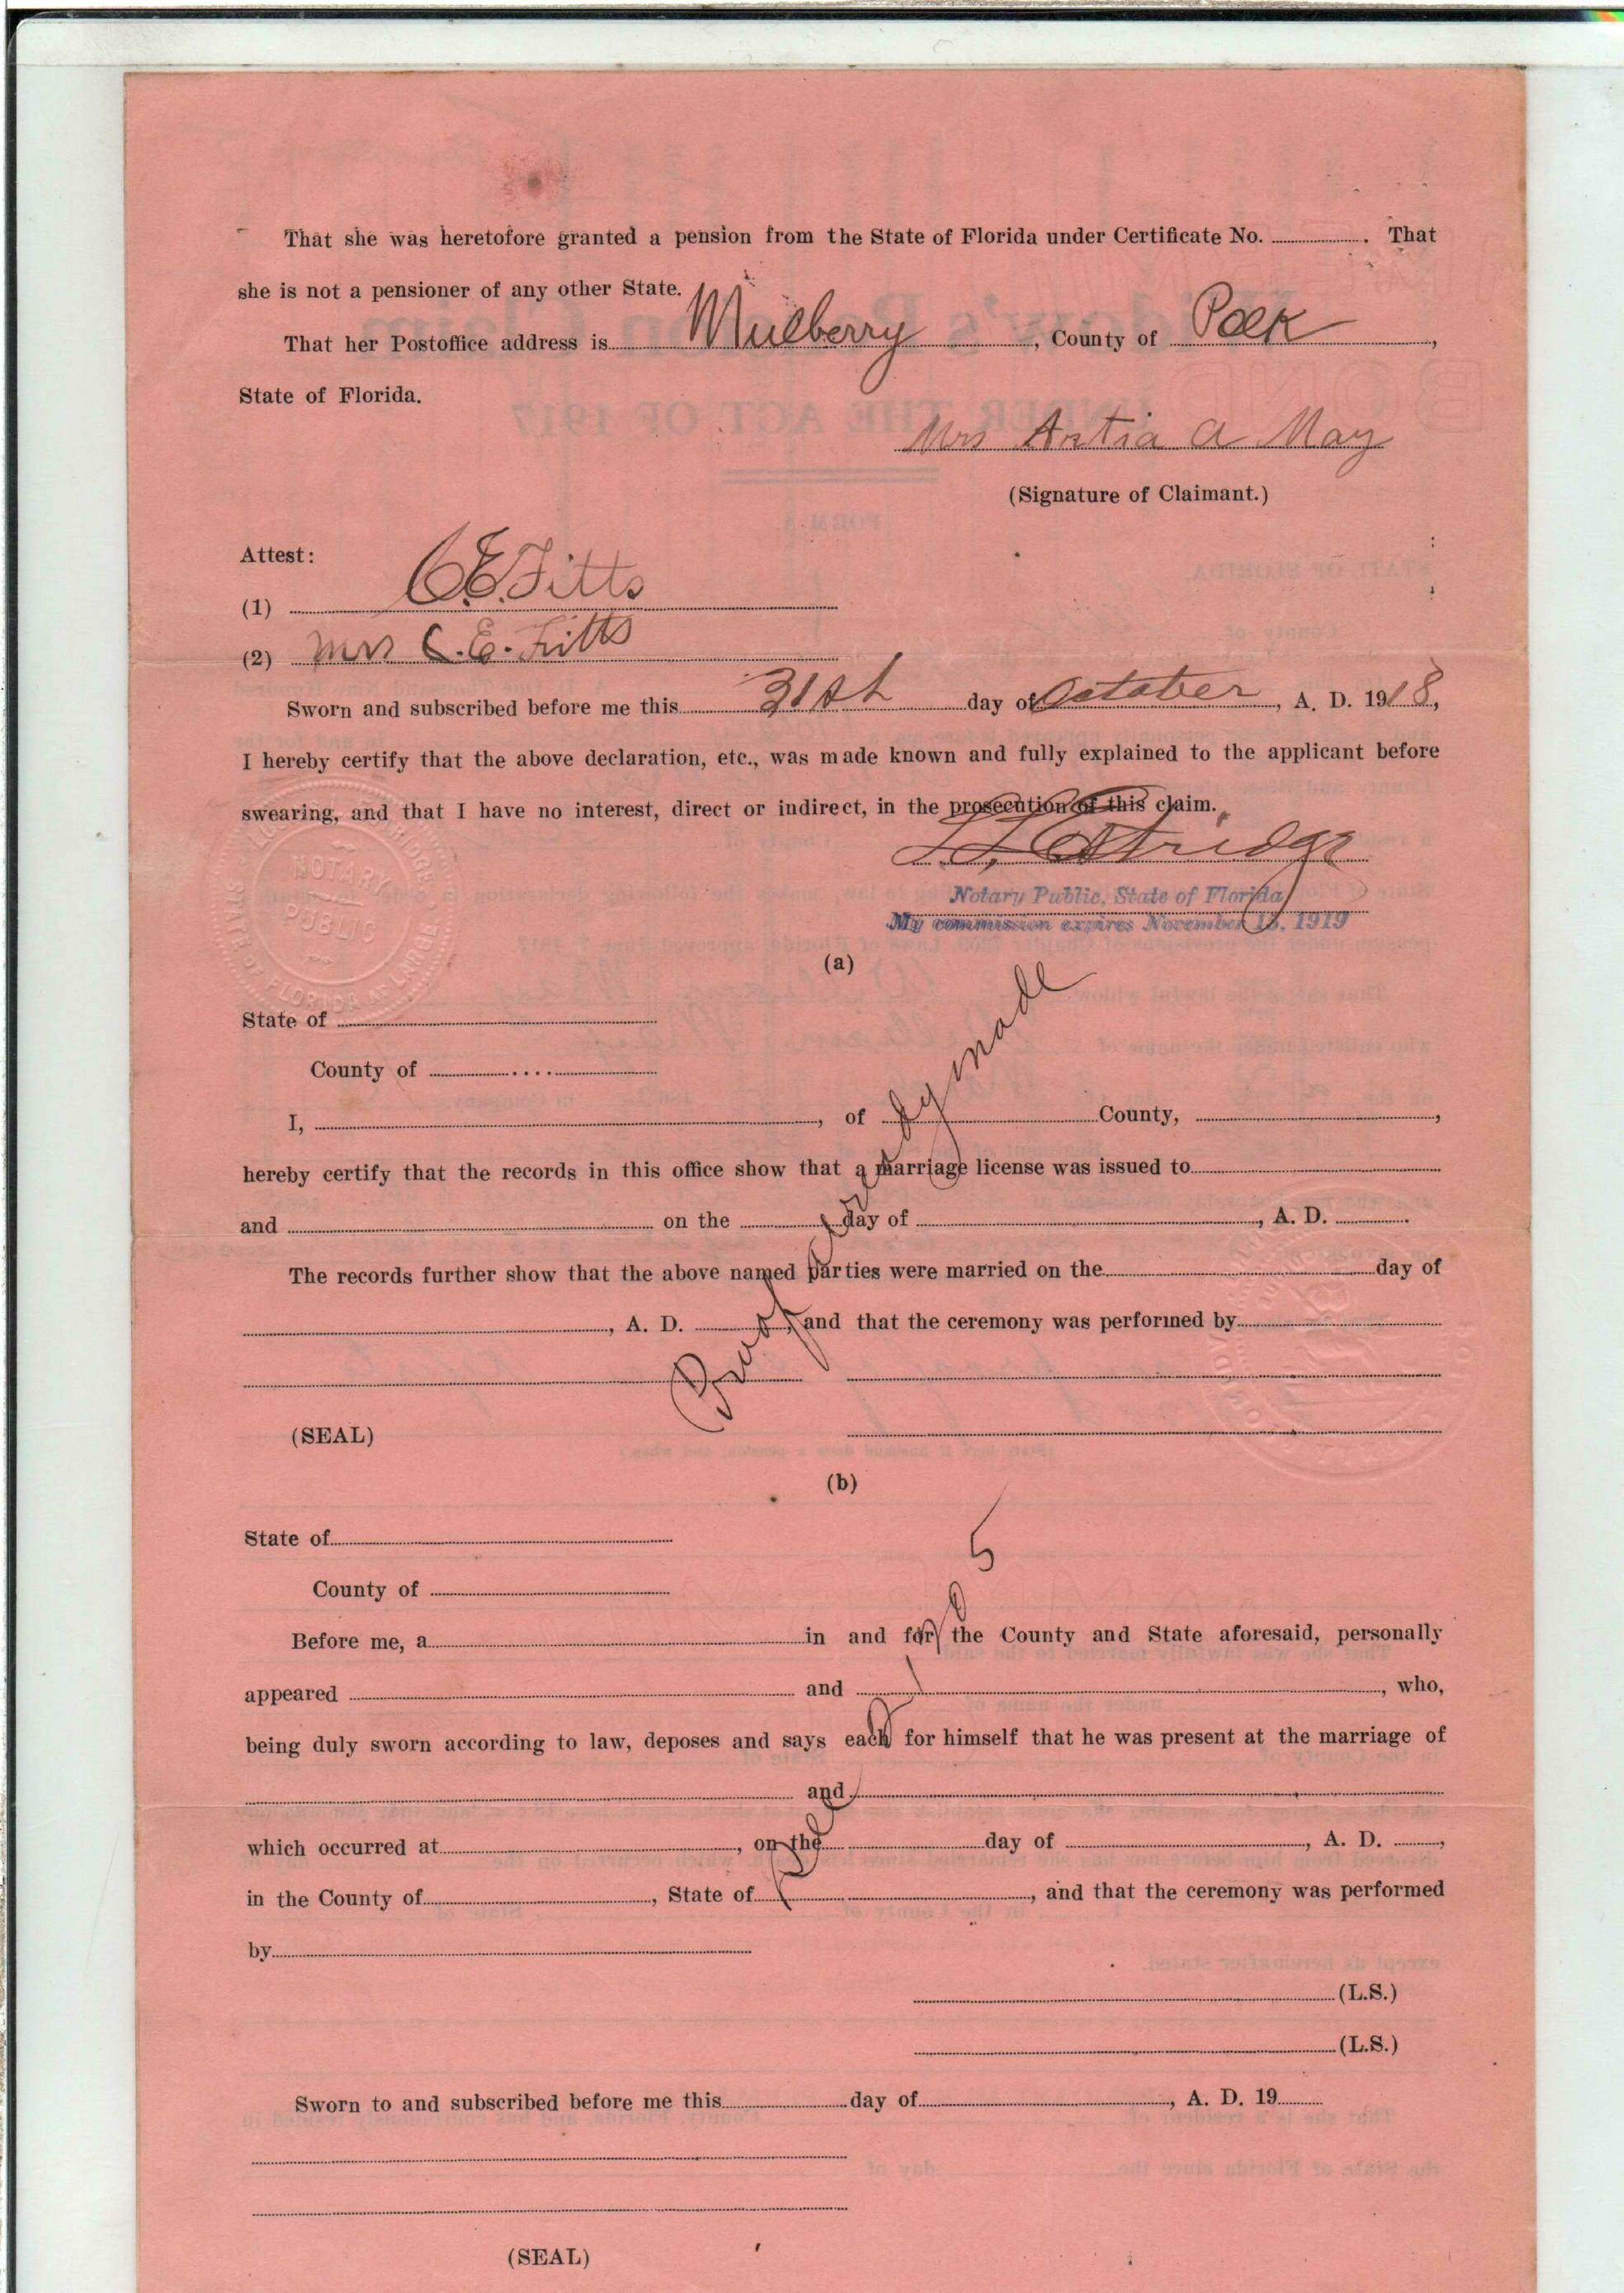 That she was heretofore granted a pension from the State of Florida under Certificate No. ........ That
she is not a pensioner of any other State.
That her Postoffice address is Mulberry, County of Polk,
State of Florida.
Mrs Antia A May
(Signature of Claimant.)
Attest:
(1) C E Fitts
(2) Mrs C. E. Fitts
Sworn and subscribed before me this 31st day of October, A. D. 1918,
I hereby certify that the above declaration, etc., was made known and fully explained to the applicant before
swearing, and that I have no interest, direct or indirect, in the prosecution of this claim.
Notary Public, State of Florida
My commission expires November 15, 1919
NOTARY PUBLIC
STATE OF FLORIDA AT LARGE
(a)
State of
County of
I, , of County, ,
hereby certify that the records in this office show that a marriage license was issued to
and on the day of , A. D.
The records further show that the above named parties were married on the day of
, A. D. , and that the ceremony was performed by
made
(SEAL)
(b)
State of
County of
Before me, a in and for the County and State aforesaid, personally
appeared and , who,
being duly sworn according to law, deposes and says each for himself that he was present at the marriage of
and
which occurred at , on the day of , A. D. ,
in the County of , State of , and that the ceremony was performed
by
(L.S.)
(L.S.)
Sworn to and subscribed before me this day of , A. D. 19
(SEAL)